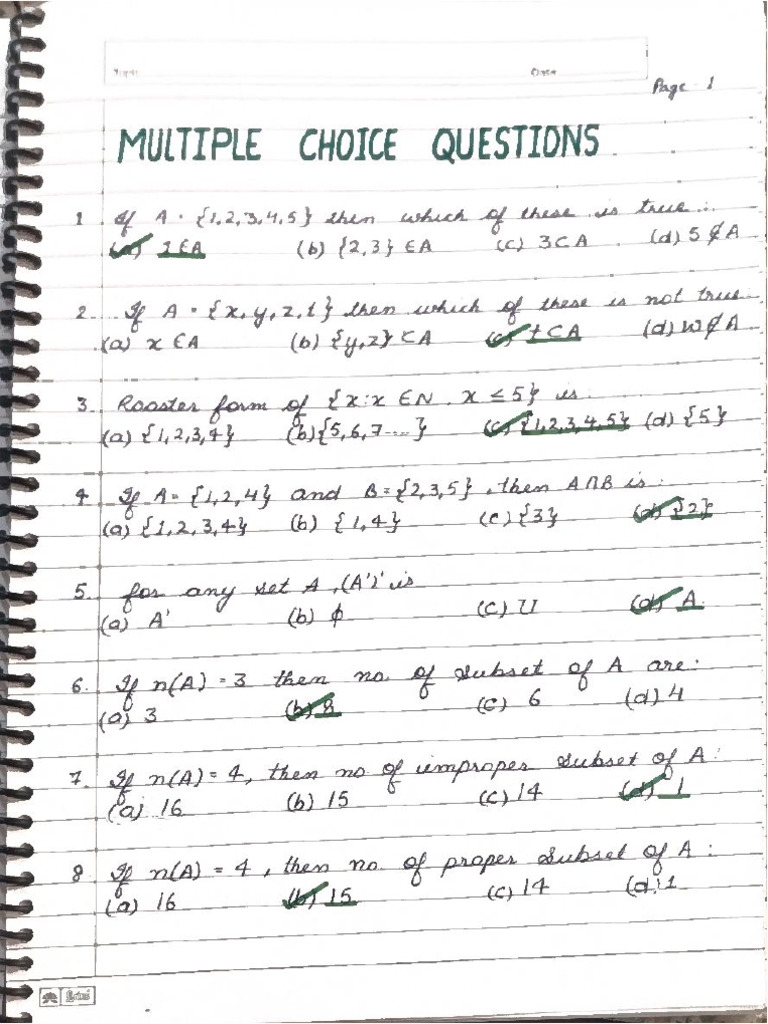 Date
Page 1
MULTIPLE CHOICE QUESTIONS
1 If A = {1,2,3,4,5} then which of these is true :
(a) 1 ∈ A (b) {2,3} ∈ A (c) 3 ⊂ A (d) 5 ∉ A
2. If A = {x, y, z, t} then which of these is not true
(a) x ∈ A (b) {y,z} ⊂ A (c) t ⊂ A (d) w ∉ A
3. Rooster form of {x : x ∈ N, x ≤ 5} is :
(a) {1,2,3,4} (b) {5,6,7....} (c) {1,2,3,4,5} (d) {5}
4. If A = {1,2,4} and B = {2,3,5}, then A∩B is :
(a) {1,2,3,4} (b) {1,4} (c) {3} (d) {2}
5. for any set A, (A')' is
(a) A' (b) ϕ (c) U (d) A
6. If n(A) = 3 then no. of subset of A are :
(a) 3 (b) 8 (c) 6 (d) 4
7. If n(A) = 4, then no of improper subset of A :
(a) 16 (b) 15 (c) 14 (d) 1
8 If n(A) = 4, then no. of proper subset of A :
(a) 16 (b) 15 (c) 14 (d) 1